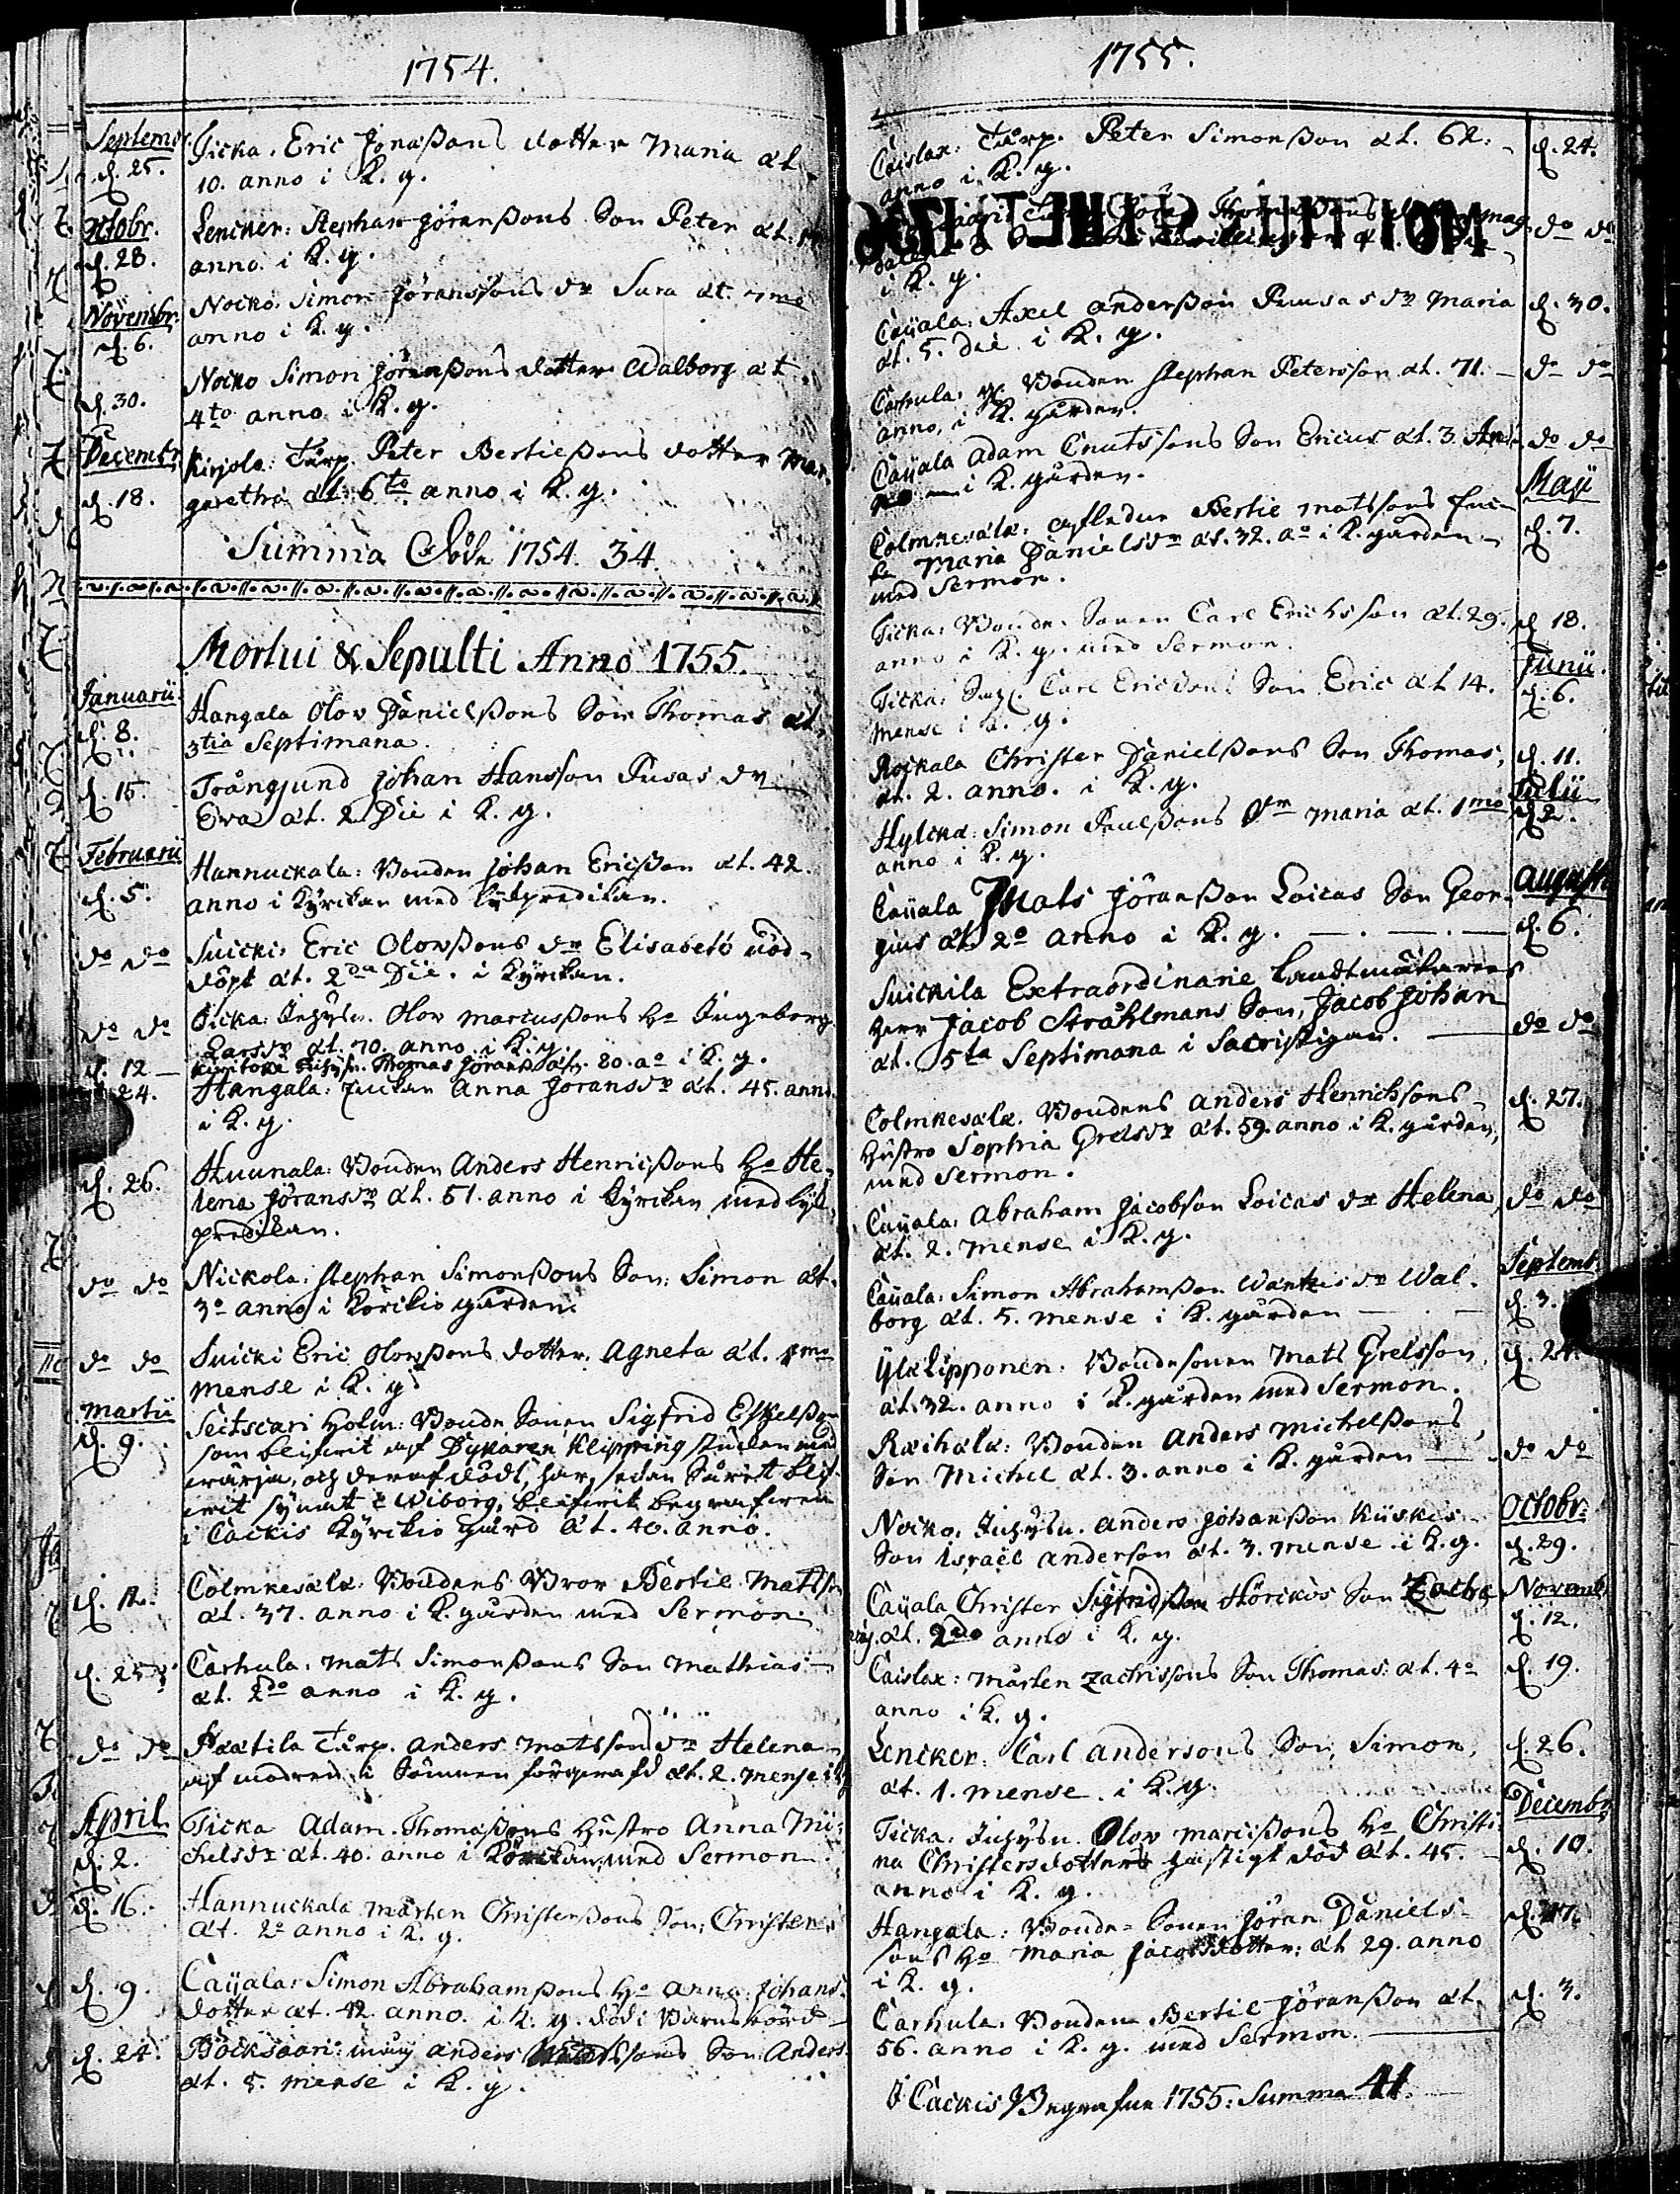 1754.
Septembr. Ticka. Eric Jonaßons dotter Maria æt.
d. 25. 10. anno i K. g.
Octobr. Lencker: Stephan Jöranßons Son Peter æt.
d. 28. anno i K. g.
Novembr. Nocko. Simon Jöranssons dr Sara æt. 7me
d. 6. anno i K. g.
Nocko Simon Jöranßons dotter Walborg æt
d. 30. 4to anno i K. g.
Decembr. Kirjola: Tårp. Peter Bertilßons dotter Mar-
d. 18. garetha æt. 6to anno i K. g.
Summa Döde 1754. 34.
Mortui & Sepulti Anno 1755.
Januarii Hangala Olov Danielßons Son Thomas æt.
d. 8. 3tia Septimana.
d. 15. Trångsund Johan Hansson Pusas dr
Eva æt. 2 Die i K. g.
Februarii Hannuckala: Bonden Johan Ericßon æt. 42.
d. 5. anno i Kyrckan med likpredikan.
do do Suicki: Eric Olovßons dr Elisabeth nöd-
döpt æt. 2da Die. i Kyrckan.
do do Ticka: Inhysn. Olov Marcusßons Ho Ingeborg
Larsdr æt. 70. anno i K. g.
d. 12 Inhysn. Thomas Jörans æt. 80. ao i K. g.
24. Hangala: Enckan Anna Joransdr æt. 45. anno
i K. g.
d. 26. Huunala: Bonden Anders Henricßons Ho He-
lena Jöransdr æt. 51. anno i Kyrckan med lik-
predikan.
do do Nickola: Stephan Simonßons Son: Simon æt.
3o anno i Körckio gården.
do do Suicki Eric Olovßons dotter. Agneta æt. 1mo
mense i K. g.
Martii Seitscari Holm: Bonde Sonen Sigfrid Eskelßon
d. 9. som blifvit af Dykaren Klipping stucken med
wärja, och deraf dödt, har, sedan Såret blif-
vit synat i Wiborg, blifvit begrafven
i Cackis Kyrckio gård æt. 40. anno.
d. 12. Colmkesala: Bondens Bror Bertil Matsson
æt. 37. anno i K. gården med Sermon.
d. 25. Carhula: Mats Simonßons Son Mathias
æt. 2do anno i K. g.
do do Tårp. Anders Matssons dr Helena
af modren i Sömnen förqvafd æt. 2. mense i K g
April Ticka Adam Thomaßons Hustro Anna Mi-
d. 2. chelsdr æt. 40. anno i Körckan med Sermon.
d. 16. Hannuckala Mårten Christerßons Son: Christer
æt. 2o anno i K. g.
d. 9. Caijala: Simon Abrahamßons Ho Anna Johans-
dotter æt. 42 anno. i K. g. död i Barnsbörd
d. 24. Böcksaari: Anders Son Anders
æt. 5. mense i K. g.
1755.
Caislax: Tårp. Peter Simonßon æt. 62. d. 24.
anno i K. g.
do do
i K. g.
Caijala: Axel Anderßon Puusas dr Maria d. 30.
æt. 5. Die i K. g.
Carhula: Bonden Stephan Petersson æt. 71. do do
anno, i K. gården.
Caijala Adam Cnutssons Son Ericus æt. 3. do do
i K. gården. Maji
Colmkesala: afledne Bertil Matssons Enc-
ka Maria Danielsdr æt. 32. ao i K. gården d. 7.
med Sermon.
Ticka: Bonde Sonen Carl Erichsson æt. 29. d 18.
anno i K. g. med Sermon.
Junii.
Ticka: Carl Ericsons Son Eric æt 14. d. 6.
mense i K. g.
Rockala Christer Danielßons Son Thomas, d. 11.
æt. 2. anno. i K. g.
Julii
Hylckä: Simon Paulßons dr Maria æt. 1mo d. 2.
anno i K. g.
Augusti
Caijala Mats Jöranßon Loicas Son Geor-
gius æt. 2o anno i K. g. d. 6.
Suickila Extraordinarie Landtmätarens
Herr Jacob Stråhlmans Son, Jacob Johan do do
æt. 5ta Septimana i Sacristigan.
Colmkesala. Bondens Anders Henrichsons d. 27.
Hustro Sophia Grelsdr æt. 59. anno i K. gården,
med Sermon.
Caijala: Abraham Jacobson Loicas dr Helena do do
æt. 2. mense i K. g.
Septemb.
Caijala: Simon Abrahamßon Wantzis dr Wal-
borg æt. 5. mense i K. gården d. 3.
Ylä Lipponen: Bondesonen Mats Grelsson, d. 24.
æt. 32. anno i K. gården med Sermon.
Raihala: Bonden Anders Michelßons
Son Michel æt. 3. anno i K. gården do do
Octobr.
Nocko. Inhysn. Anders Johanßon Kiiskis
Son Israël Anderson æt. 3. mense i K. g. d. 29.
Caijala Christer Sigfridßon Hörckös Son Zacha- Novemb.
rias. æt. 2do anno i K. g. d. 12.
Caislax: Mårten Zachrissons Son Thomas: æt. 4o d. 19.
anno i K. g.
Lencker: Carl Andersons Son, Simon, d. 26.
æt. 1. mense. i K. g.
Decembr
Ticka: Inhysn. Olov Marcißons Ho Christi-
na Christersdotter hastigt död æt. 45. d. 10.
anno i K. g.
Hangala: Bonde-Sonen Jöran Daniels- d. 17.
sons Ho Maria Jacobsdotter; æt 29. anno
i K. g.
Carhula: Bonden Bertil Jöranßon æt. d. 3.
56. anno i K. g. med Sermon.
I Cackis Begrafne 1755: Summa 41.